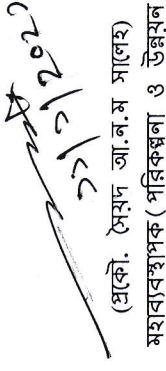 ১১/১/২০২১
(প্রকৌ. সৈয়দ আ.ন.ম সালেহ)
মহাব্যবস্থাপক ( পরিকল্পনা ও উন্নয়ন